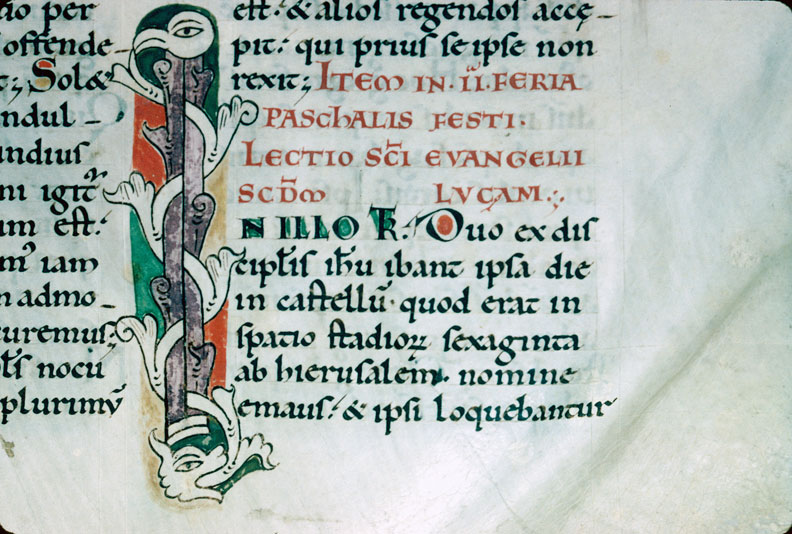 per
offende-
Sol&
ndul-
ni igitᷣ
um est.
iam
n admo-
uremus;
nocū
plurimū
est. & alios regendos acce-
pit. qui prius se ipse non
rexit; ITEM IN .II. FERIA
PASCHALIS FESTI.
LECTIO SCĪ EVANGELII
SCD̄M LUCAM.
IN ILLO T̄R. Duo ex dis
cipl̄is ih̄u ibant ipsa die
in castellū. quod erat in
spatio stadioꝝ sexaginta
ab hierusalem. nomine
emaus. & ipsi loquebantur